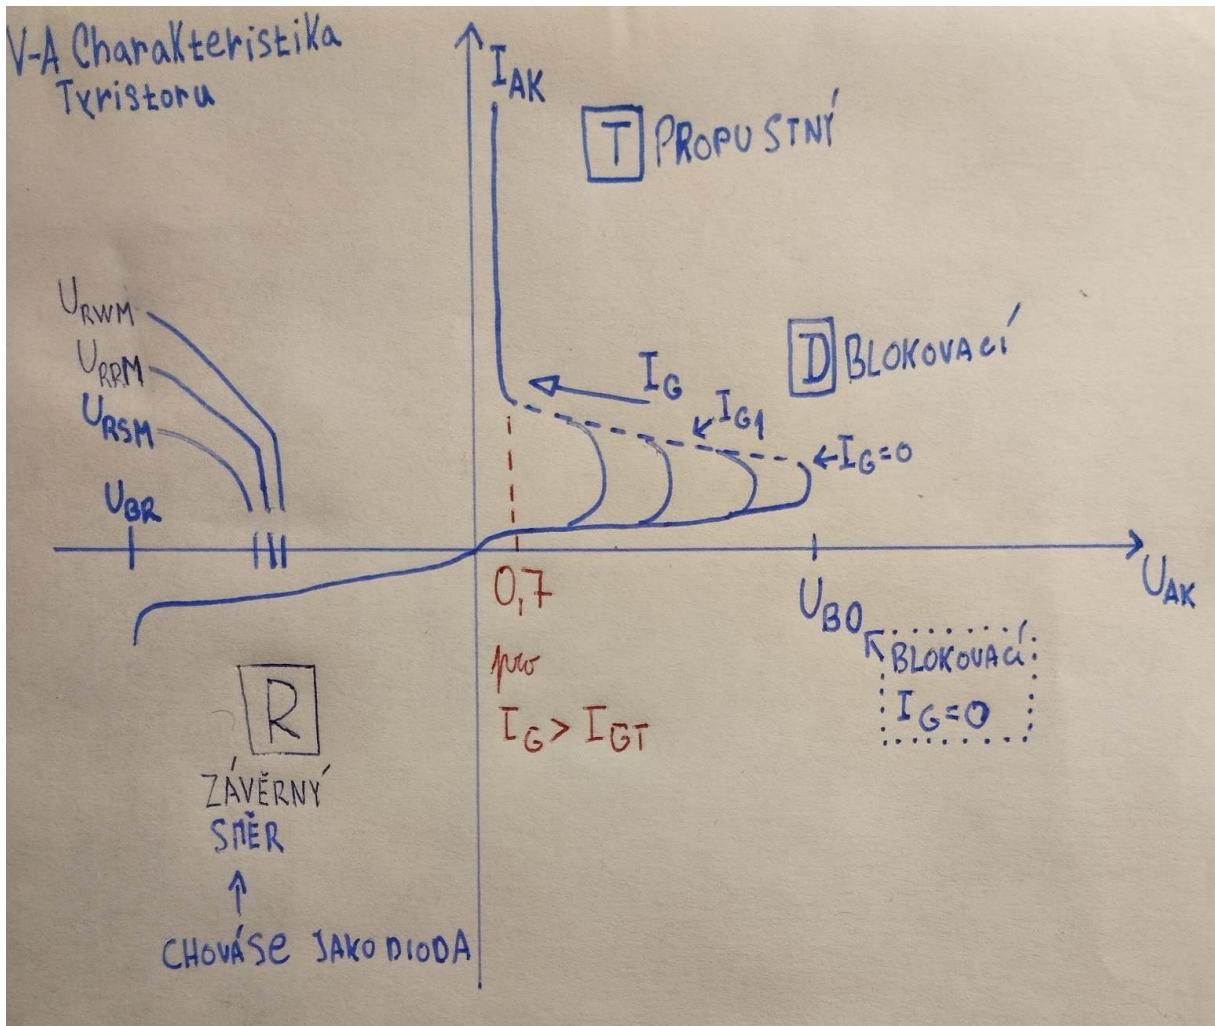 V-A Charakteristika
Tyristoru
I_AK
T PROPUSTNÝ
U_RWM
U_RRM
U_RSM
U_BR
I_G
D BLOKOVACÍ
I_G1
I_G=0
0,7
pro
I_G > I_GT
U_BO
U_AK
BLOKOVACÍ
I_G=0
R
ZÁVĚRNÝ
SMĚR
CHOVÁSE JAKO DIODA